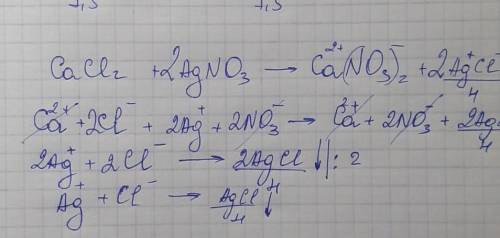 CaCl₂ + 2AgNO₃ → Ca²⁺(NO₃)⁻₂ + 2Ag⁺Cl⁻
н
Ca²⁺ + 2Cl⁻ + 2Ag⁺ + 2NO₃⁻ → Ca²⁺ + 2NO₃⁻ + 2Ag
н
2Ag⁺ + 2Cl⁻ → 2AgCl ↓ | : 2
н
Ag⁺ + Cl⁻ → AgCl ↓
н